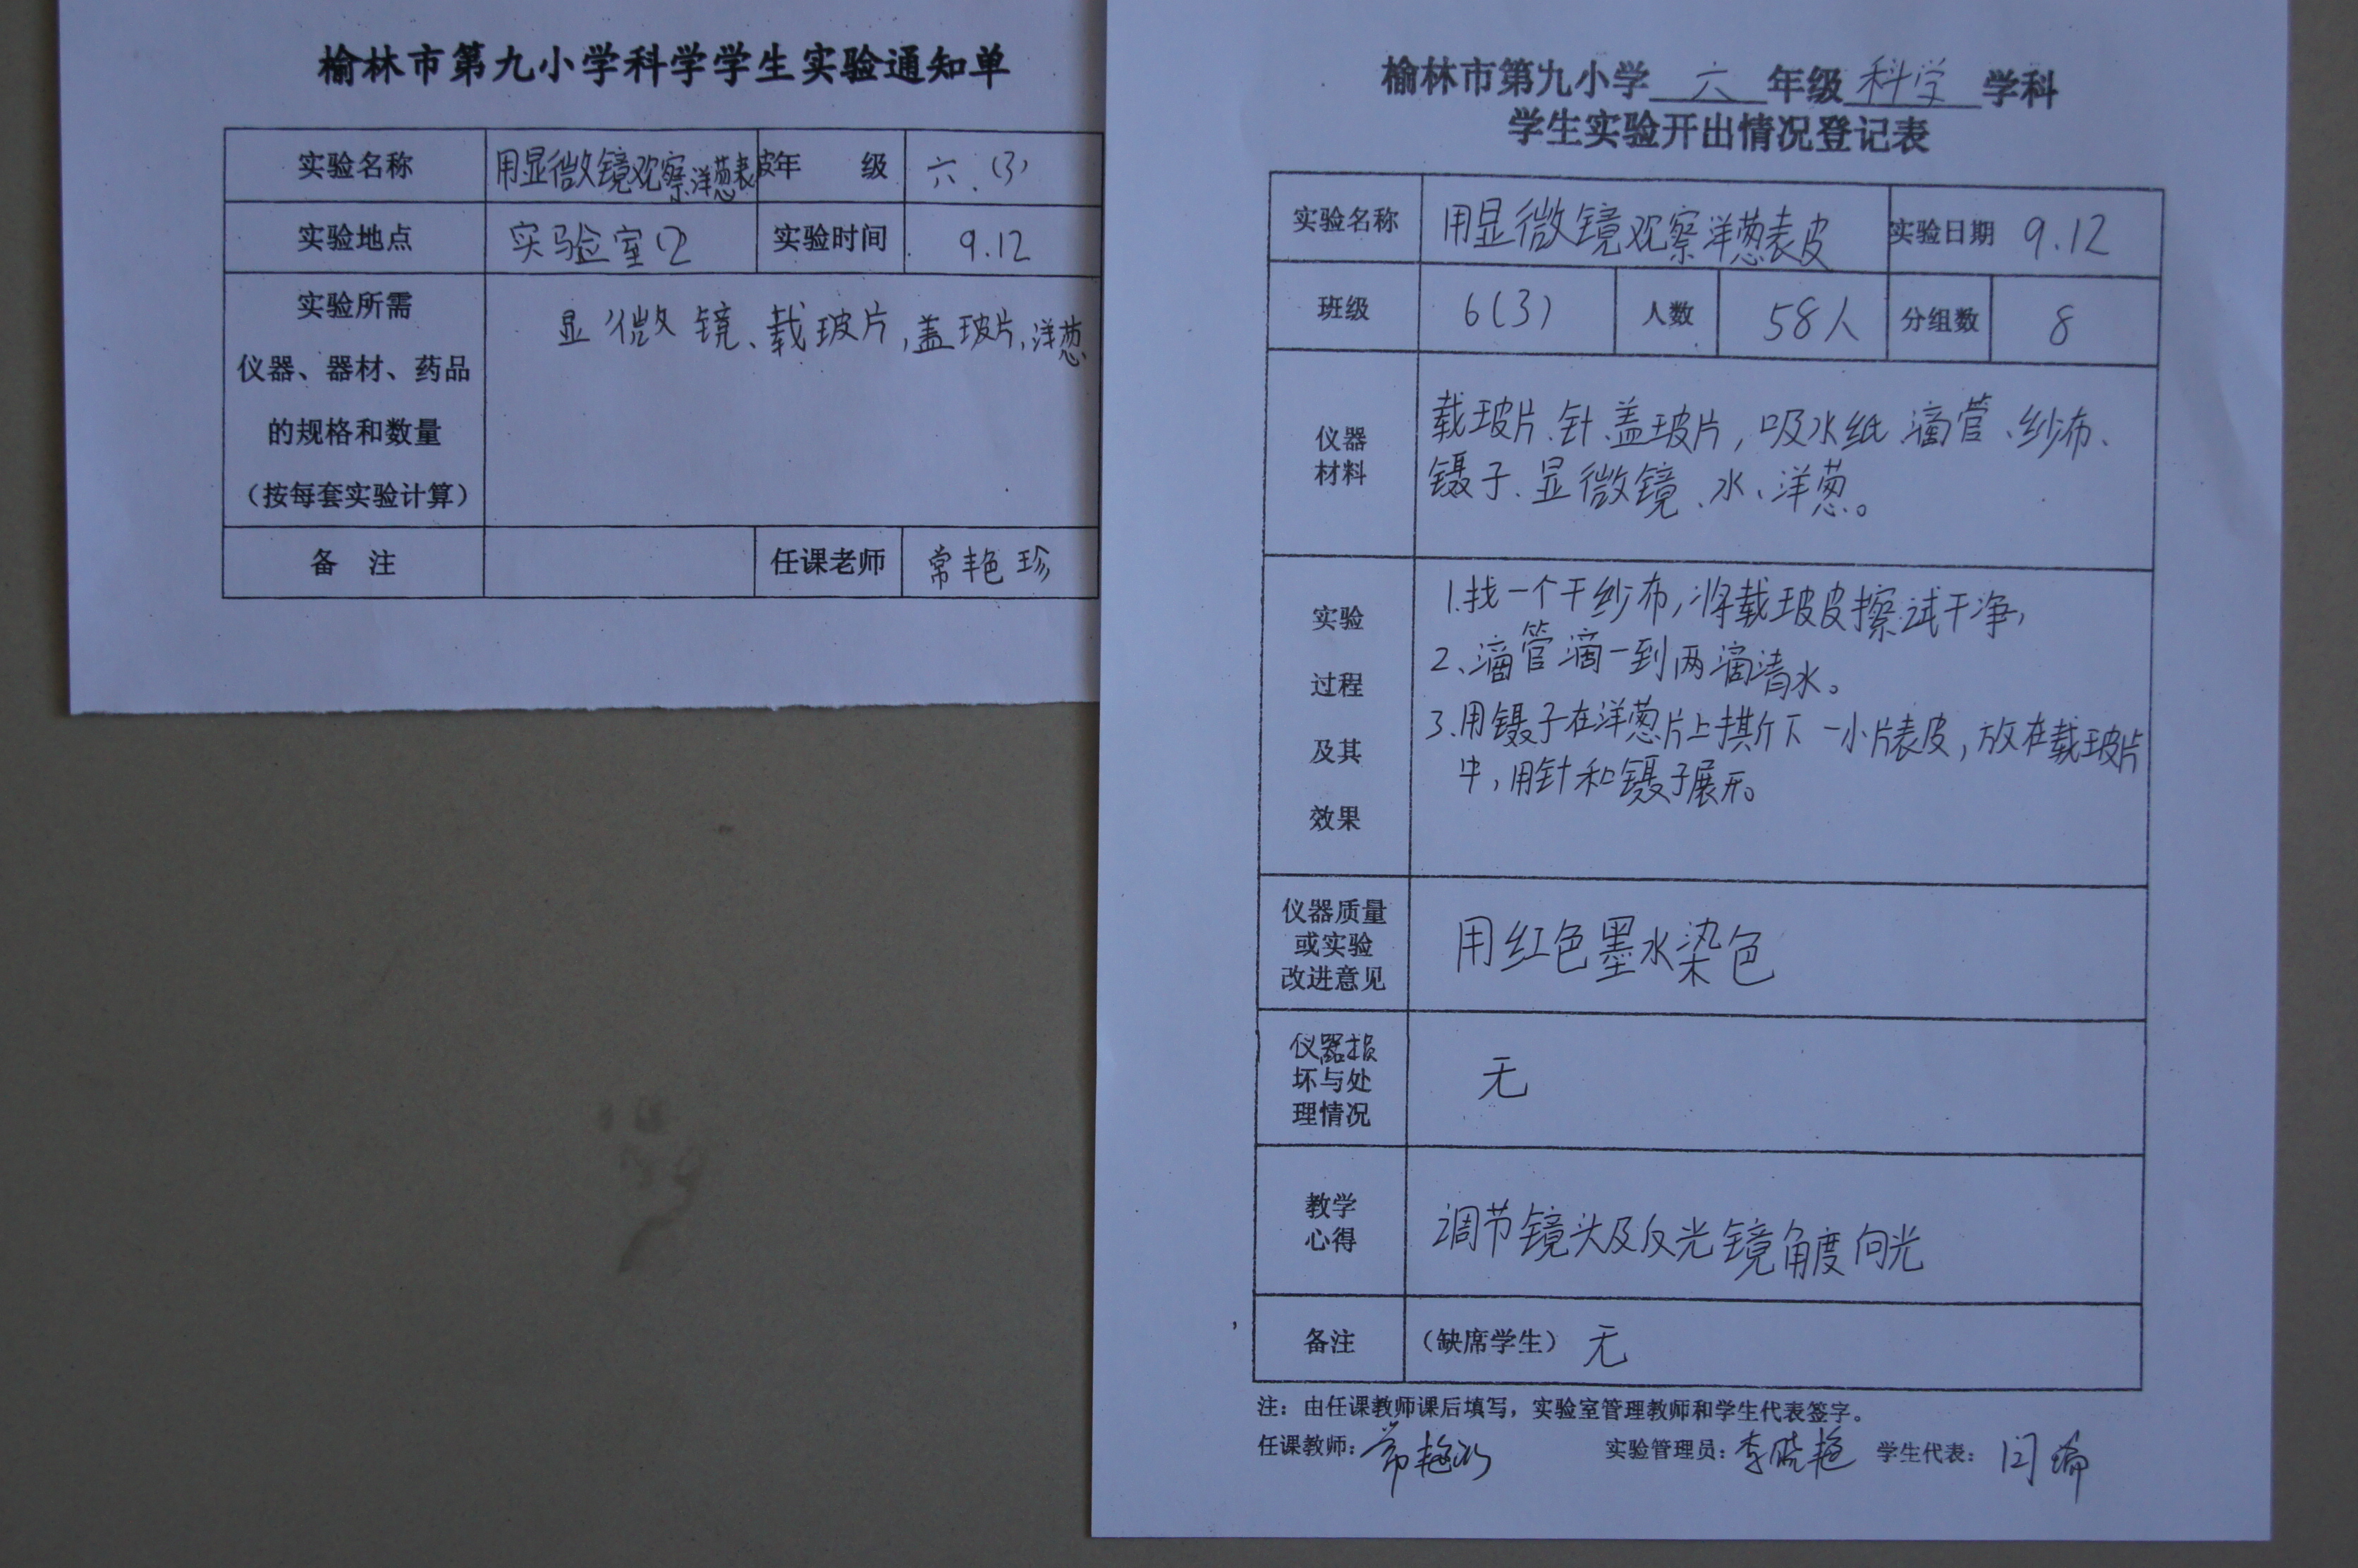 榆林市第九小学科学学生实验通知单
实验名称 用显微镜观察洋葱表皮 年 级 六.(3)
实验地点 实验室(2) 实验时间 9.12
实验所需
仪器、器材、药品
的规格和数量
(按每套实验计算)
显微镜、载玻片,盖玻片,洋葱
备 注 任课老师 常艳珍
榆林市第九小学 六 年级 科学 学科
学生实验开出情况登记表
实验名称 用显微镜观察洋葱表皮 实验日期 9.12
班级 6(3) 人数 58人 分组数 8
仪器
材料
载玻片、针、盖玻片,吸水纸、滴管、纱布、
镊子、显微镜、水、洋葱。
实验
过程
及其
效果
1.找一个干纱布,将载玻皮擦试干净,
2、滴管滴一到两滴清水。
3.用镊子在洋葱片上撕下一小片表皮,放在载玻片
中,用针和镊子展开。
仪器质量
或实验
改进意见
用红色墨水染色
仪器损
坏与处
理情况
无
教学
心得
调节镜头及反光镜角度向光
备注 (缺席学生) 无
注:由任课教师课后填写,实验室管理教师和学生代表签字。
任课教师:常艳珍 实验管理员:李晓艳 学生代表:闫